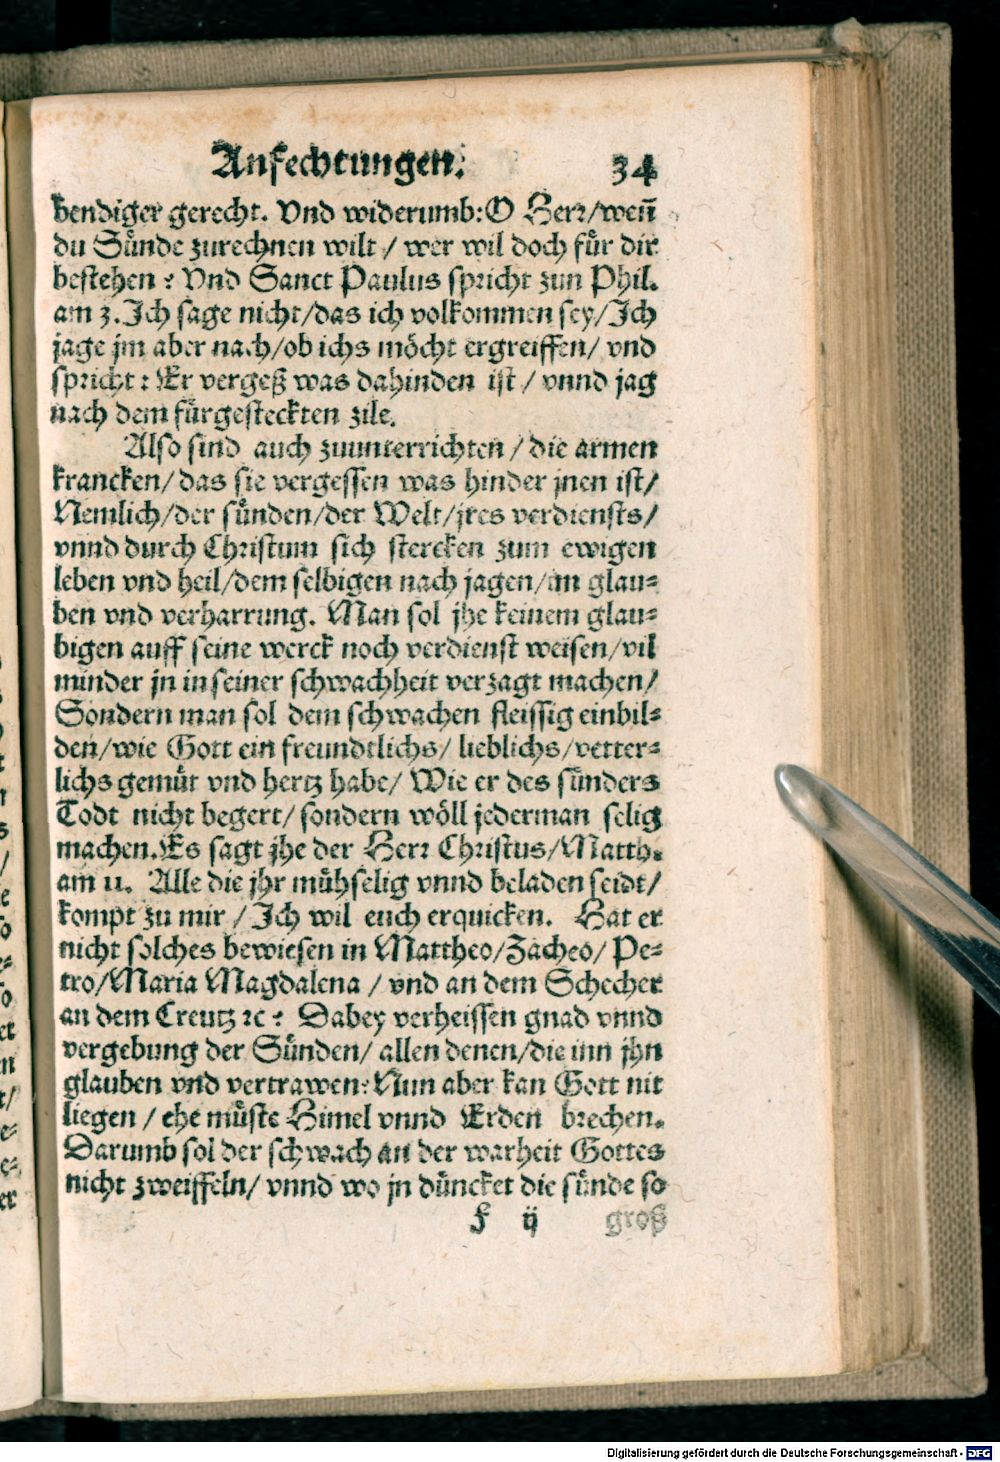 Anfechtungen. 34
bendiger gerecht. Vnd widerumb: O Herr/ weñ
du Sünde zurechnen wilt / wer wil doch für dir
bestehen? Vnd Sanct Paulus spricht zun Phil.
am 3. Ich sage nicht/ das ich volkommen sey/ Ich
jage jm aber nach/ ob ichs möcht ergreiffen/ vnd
spricht: Er vergeß was dahinden ist / vnnd jag
nach dem fürgesteckten zile.
Also sind auch zuunterrichten / die armen
krancken/ das sie vergessen was hinder jnen ist/
Nemlich/ der sünden/ der Welt/ jres verdiensts/
vnnd durch Christum sich stercken zum ewigen
leben vnd heil/ dem selbigen nach jagen/ im glau-
ben vnd verharrung. Man sol jhe keinem glau-
bigen auff seine werck noch verdienst weisen/ vil
minder jn in seiner schwachheit verzagt machen/
Sondern man sol dem schwachen fleissig einbil-
den/ wie Gott ein freundtlichs/ lieblichs/ vetter-
lichs gemüt vnd hertz habe/ Wie er des sünders
Todt nicht begert/ sondern wöll jederman selig
machen. Es sagt jhe der Herr Christus/ Matth.
am 11. Alle die jhr mühselig vnnd beladen seidt/
kompt zu mir / Ich wil euch erquicken. Hat er
nicht solches bewiesen in Mattheo/ Zacheo/ Pe-
tro/ Maria Magdalena / vnd an dem Schecher
an dem Creutz ꝛc? Dabey verheissen gnad vnnd
vergebung der Sünden/ allen denen/ die inn jhn
glauben vnd vertrawen: Nun aber kan Gott nit
liegen / ehe müste Himel vnnd Erden brechen.
Darumb sol der schwach an der warheit Gottes
nicht zweiffeln/ vnnd wo jn düncket die sünde so
f ij groß
Digitalisierung gefördert durch die Deutsche Forschungsgemeinschaft - DFG